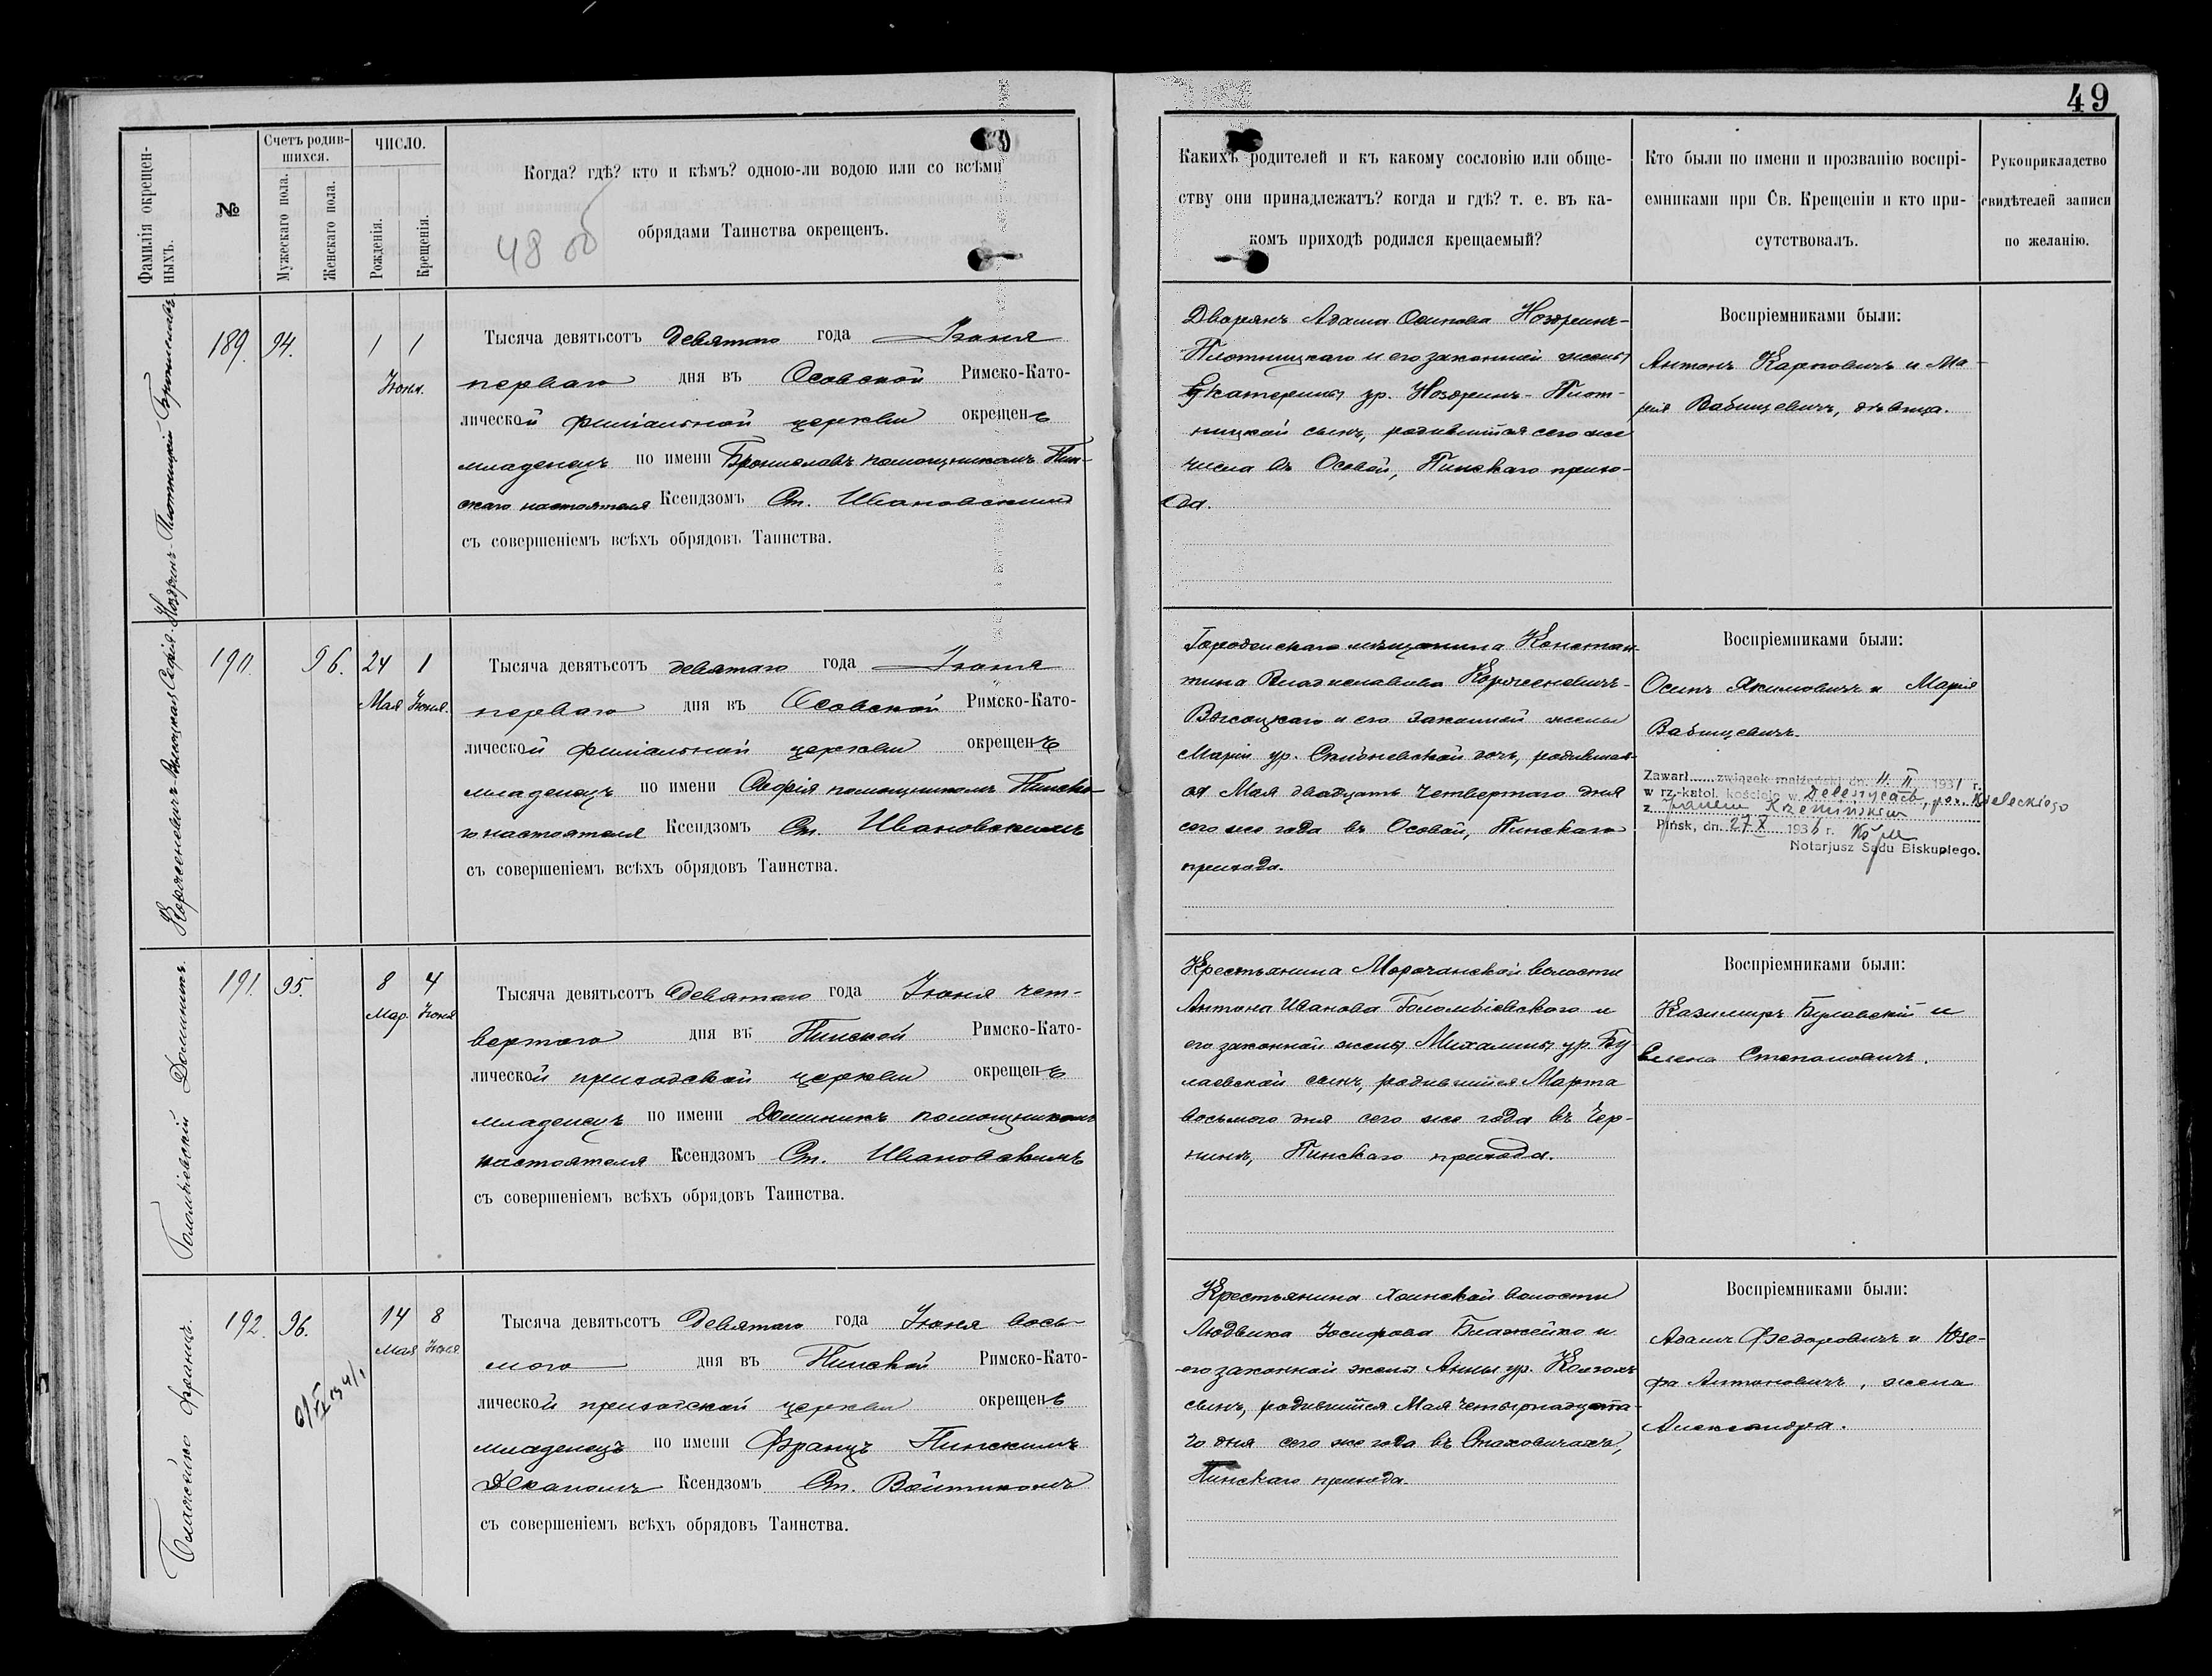 49
Фамилія окрещен-
ныхъ.
№
Счетъ родив-
шихся.
Мужескаго пола.
Женскаго пола.
ЧИСЛО.
Рожденія.
Крещенія.
Когда? гдѣ? кто и кѣмъ? одною-ли водою или со всѣми
обрядами Таинства окрещенъ.
48 об
Какихъ родителей и къ какому сословію или обще-
ству они принадлежатъ? когда и гдѣ? т. е. въ ка-
комъ приходѣ родился крещаемый?
Кто были по имени и прозванію воспрі-
емниками при Св. Крещеніи и кто при-
сутствовалъ.
Рукоприкладство
свидѣтелей записи
по желанію.
Ноздринъ-Плотницкій Брониславъ.
189. 94. 1 1
Іюня.
Тысяча девятьсотъ девятаго года Іюня
перваго дня въ Осовской Римско-Като-
лической филіальной церкви окрещенъ
младенецъ по имени Брониславъ помощникомъ Пин-
скаго настоятеля Ксендзомъ Ст. Ивановскимъ
съ совершеніемъ всѣхъ обрядовъ Таинства.
Дворянъ Адама Осипова Ноздринъ-
Плотницкаго и его законной жены
Екатерины ур. Ноздринъ-Плот-
ницкой сынъ, родившійся сего же
числа въ Осовой, Пинскаго прихо-
да.
Воспріемниками были:
Антонъ Карповичъ и Ма-
рія Вабищевичъ, дѣвица.
Корженевичъ-Высоцкая Софія.
190. 96. 24 1
Мая Іюня.
Тысяча девятьсотъ девятаго года Іюня
перваго дня въ Осовской Римско-Като-
лической филіальной церкви окрещенъ
младенецъ по имени Софія помощникомъ Пинска-
го настоятеля Ксендзомъ Ст. Ивановскимъ
съ совершеніемъ всѣхъ обрядовъ Таинства.
Городенскаго мѣщанина Констан-
тина Владиславова Корженевичъ-
Высоцкаго и его законной жены
Маріи ур. дочь, родившая-
ся Мая двадцать четвертаго дня
сего же года въ Осовой, Пинскаго
прихода.
Воспріемниками были:
Осипъ Якимовичъ и Марія
Вабищевичъ.
Zawarł...... związek małżeński dn. 11. II 1931 r.
w rz.-katol. kościele w Deleszycach, pow. Kieleckiego
z panem Krzemińskim
Pińsk, dn. 27 X 1936 r.
Notarjusz Sądu Biskupiego.
Голомбіевскій Доминикъ.
191. 95. 8 4
Мар. Іюня
Тысяча девятьсотъ девятаго года Іюня чет-
вертаго дня въ Пинской Римско-Като-
лической приходской церкви окрещенъ
младенецъ по имени Доминикъ помощникомъ
настоятеля Ксендзомъ Ст. Ивановскимъ
съ совершеніемъ всѣхъ обрядовъ Таинства.
Крестьянина Морочанской волости
Антона Иванова Голомбіевскаго и
его законной жены Михалины ур. Бу-
лавской сынъ, родившійся Марта
восьмого дня сего же года въ Чер-
нинѣ, Пинскаго прихода.
Воспріемниками были:
Казимиръ Булавскій и
Елена Степановичъ.
Блажейко Францъ.
192. 96. 14 8
Мая Іюня
Тысяча девятьсотъ девятаго года Іюня вось-
мого дня въ Пинской Римско-Като-
лической приходской церкви окрещенъ
младенецъ по имени Францъ Пинскимъ
Деканомъ Ксендзомъ Ст. Войтикомъ
съ совершеніемъ всѣхъ обрядовъ Таинства.
Крестьянина Хоинской волости
Людвика Іосифова Блажейко и
его законной жены Анны ур.
сынъ, родившійся Мая четырнадцата-
го дня сего же года въ Стаховичахъ,
Пинскаго прихода.
Воспріемниками были:
Адамъ Федоровичъ и Юзе-
фа Антоновичъ, жена
Александра.